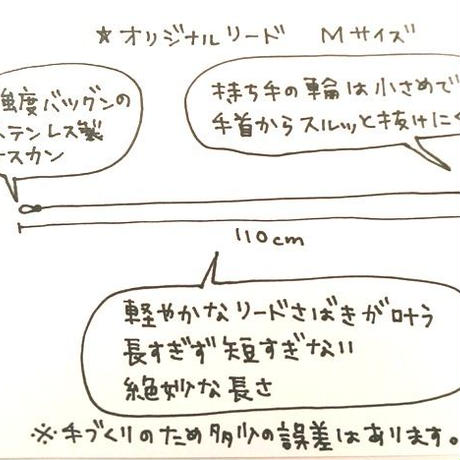 ★オリジナルリード Mサイズ
強度バツグンの
ステンレス製
ースカン
持ち手の輪は小さめで
手首からスルッと抜けにく
110cm
軽やかなリードさばきが叶う
長すぎず短すぎない
絶妙な長さ
※手づくりのため多少の誤差はあります。